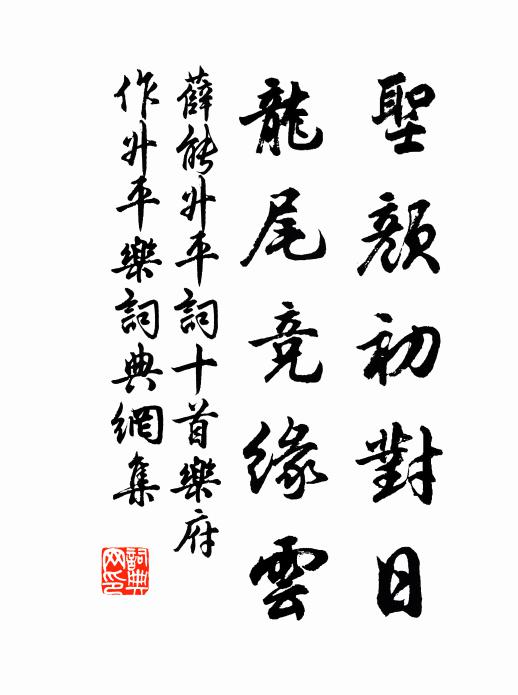 聖顔初對日
龍尾竞緣雲
薛能升平詞十首樂府
作升平樂詞典網集
詞典网印